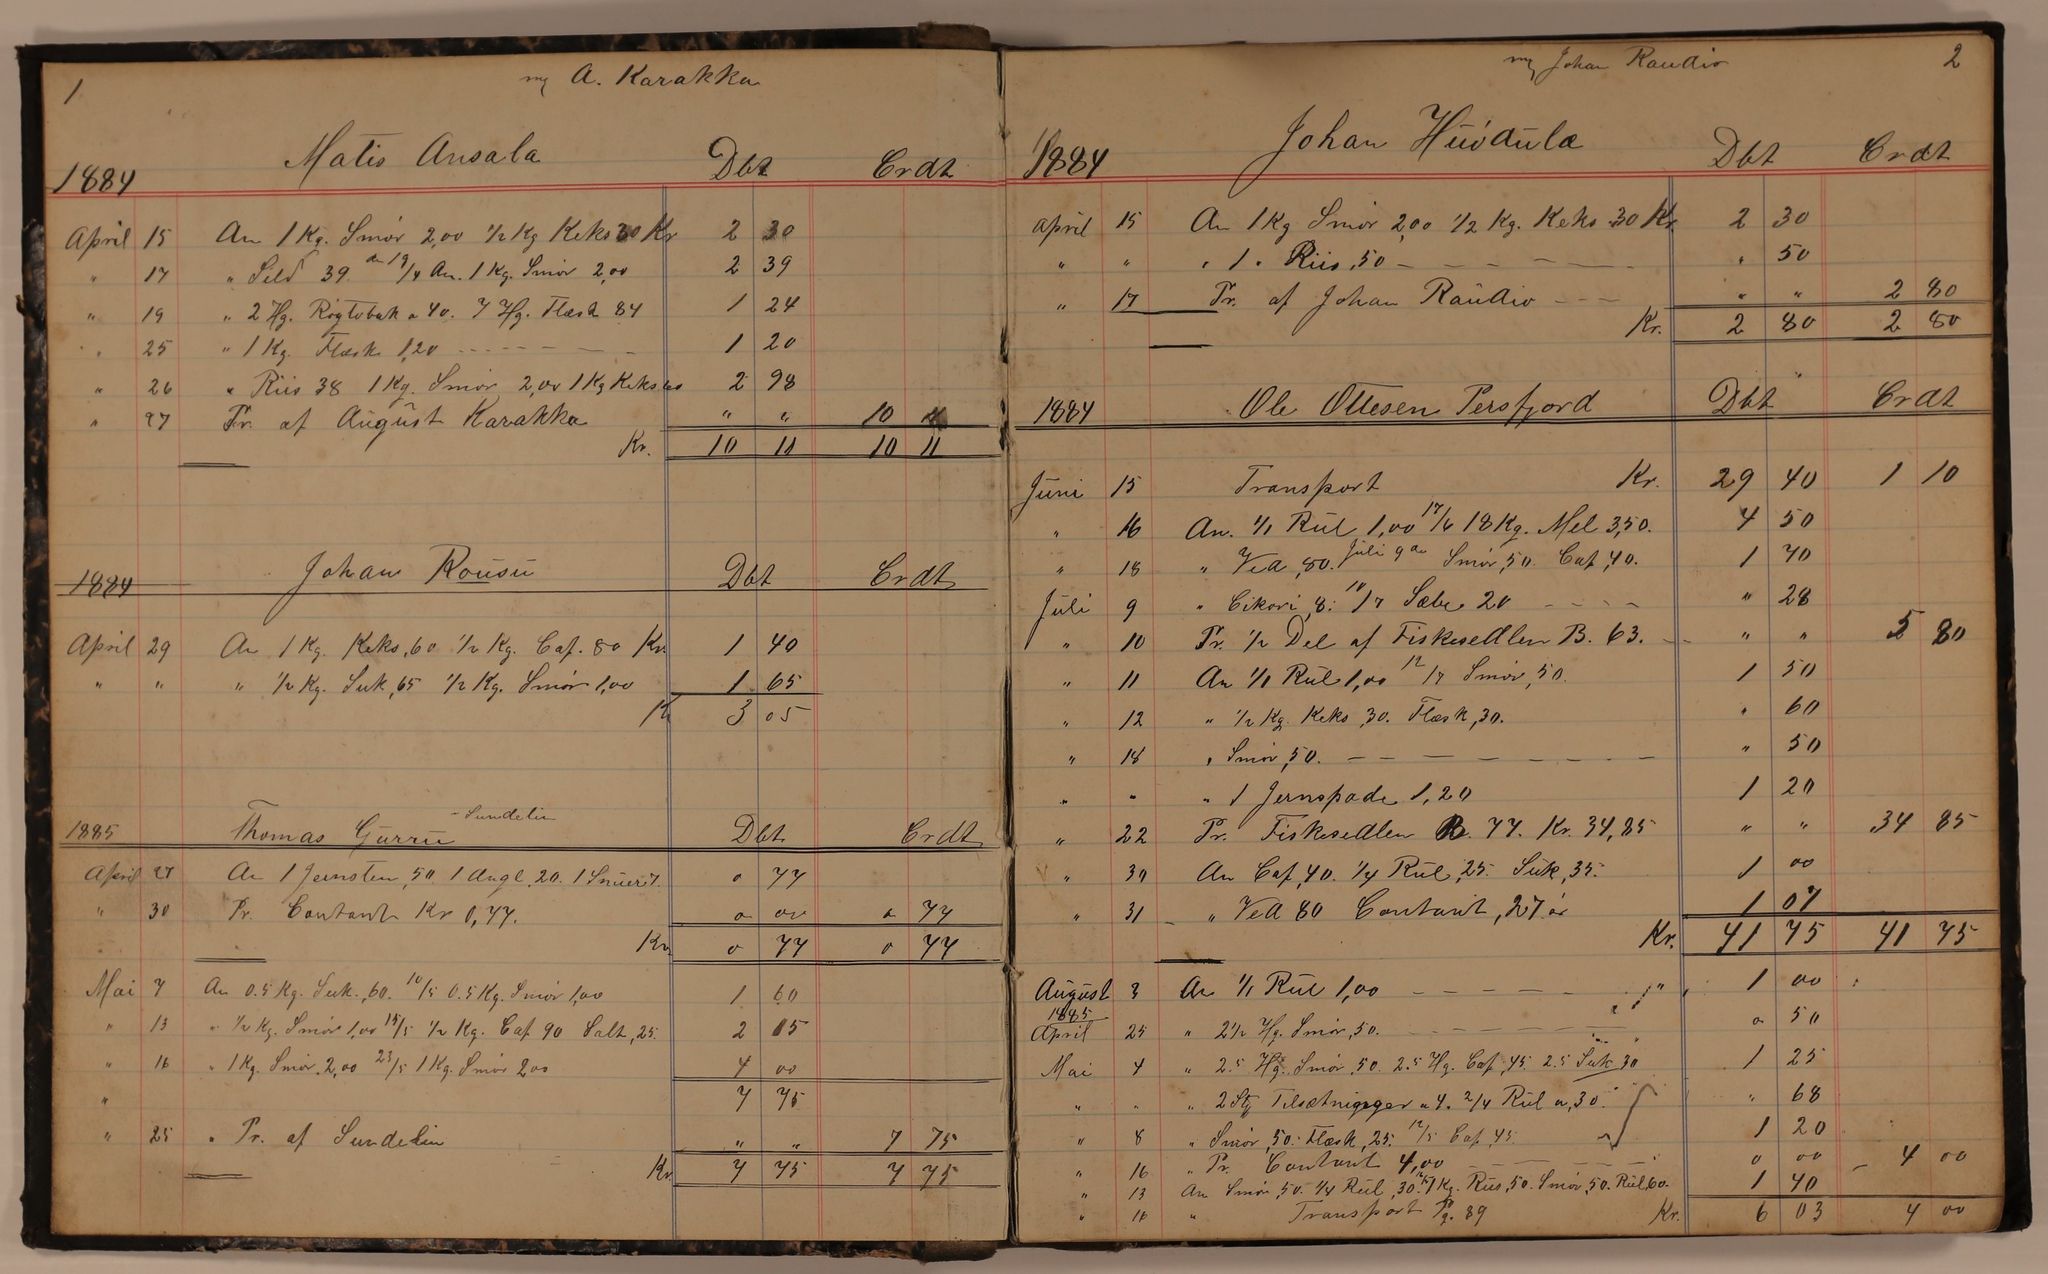 1
A. Karakka
Matis Ansala
1884 Dbt Crdt
April 15 An 1 Kg. Smør 2,00 1/2 Kg Keks 30 Kr 2 30
" 17 " Sild 39 an 19/4 An. 1 Kg. Smør 2,00 2 39
" 19 " 2 Hg. Røgtobak a 40. 7 Hg. Flæsk 84 1 24
" 25 " 1 Kg. Flæsk 1,20 1 20
" 26 " Riis 38 1 Kg. Smør 2,00 1 Kg Keks 60 2 98
" 27 Pr. af August Karakka " " 10 11
Kr. 10 11 10 11
Johan Rousu
1884 Dbt Crdt
April 29 An 1 Kg. Keks ,60 1/2 Kg. Caf. 80 Kr. 1 40
" " " 1/2 Kg. Suk ,65 1/2 Kg. Smør 1,00 1 65
Kr 3 05
1885 Thomas Gurru - Sundelin Dbt. Crdt
April 27 An 1 Jernsten ,50 1 Angl ,20. 1 Snøer 7. 0 77
" 30 Pr. Contant Kr 0,77. 0 00 0 77
Kr. 0 77 0 77
Mai 7 An 0.5 Kg. Suk. ,60. 10/5 0.5 Kg. Smør 1,00 1 60
" 13 " 1/2 Kg. Smør 1,00 15/5 1/2 Kg. Caf 90 Salt ,25. 2 15
" 16 " 1 Kg. Smør 2,00 23/5 1 Kg. Smør 2,00 4 00
" 7 75
" 25 " Pr. af Sundelin " " 7 75
Kr 7 75 7 75
Johan Raudio 2
Johan Huvdula
1884 Dbt Crdt
April 15 An 1 Kg Smør 2,00 1/2 Kg. Keks 30 Kr. 2 30
" " " 1 " Riis ,50 " 50
" 17 Pr. af Johan Raudio " " 2 80
Kr. 2 80 2 80
1884 Ole Ottesen Persfjord Dbt Crdt
Juni 15 Transport Kr. 29 40 1 10
" 16 An. 1/1 Rul 1,00 17/6 18 Kg. Mel 3,50. 4 50
" 18 " Ved ,80. Juli 9 an Smør ,50. Caf ,40. 1 70
Juli 9 " Cikori ,8: 10/7 Sæbe 20 " 28
" 10 Pr. 1/2 Del af Fiskesedlen B. 63. " " 5 80
" 11 An 1/1 Rul 1,00 12/7 Smør ,50. 1 50
" 12 " 1/2 Kg. Keks ,30. Flæsk ,30. " 60
" 18 " Smør ,50. " 50
" " " 1 Jernspade 1,20 1 20
" 22 Pr. Fiskesedlen B. 77. Kr. 34,85 " " 34 85
" 30 An Caf ,40. 1/4 Rul ,25. Suk ,35. 1 00
" 31 " Ved 80 Contant ,27 ør 1 07
Kr. 41 75 41 75
August 3 An 1/1 Rul 1,00 1 00
1885
April 25 " 2 1/2 Hg. Smør ,50. 0 50
Mai 4 " 2.5 Hg. Smør ,50. 2.5 Hg. Caf ,45. 2.5 Suk 30 1 25
" " " 2 Stj Tilsætninger a 4. 2/4 Rul a ,30. " 68
" 8 " Smør ,50. Flæsk ,25. 12/5 Caf ,45. 1 20
" 16 " Pr. Contant 4,00 0 00 4 00
" 13 An Smør ,50. 1/4 Rul ,30. 1 Kg. Riis ,50. Smør ,50. Rul ,60. 1 40
" 16 " Transport Pg. 89 Kr. 6 03 4 00